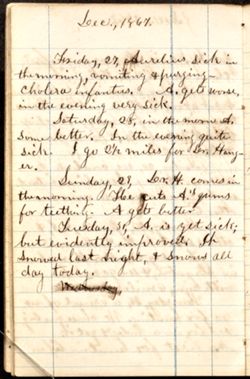 Dec., 1867.
Friday, 27, Aurelius sick in
the morning, vomiting & purging—
cholera infantus. A. gets worse,
in the evening very sick.
Saturday, 28, in the morn A.
some better. In the evening quite
sick. I go 2½ miles for Dr. Hang-
er.
Sunday, 29, Dr. H. comes in
the morning. He cuts A's gums
for teething. A gets better.
Tuesday, 31, A. is yet sick;
but evidently improved. It
snowed last night, & snows all
day today.
Wednesday,